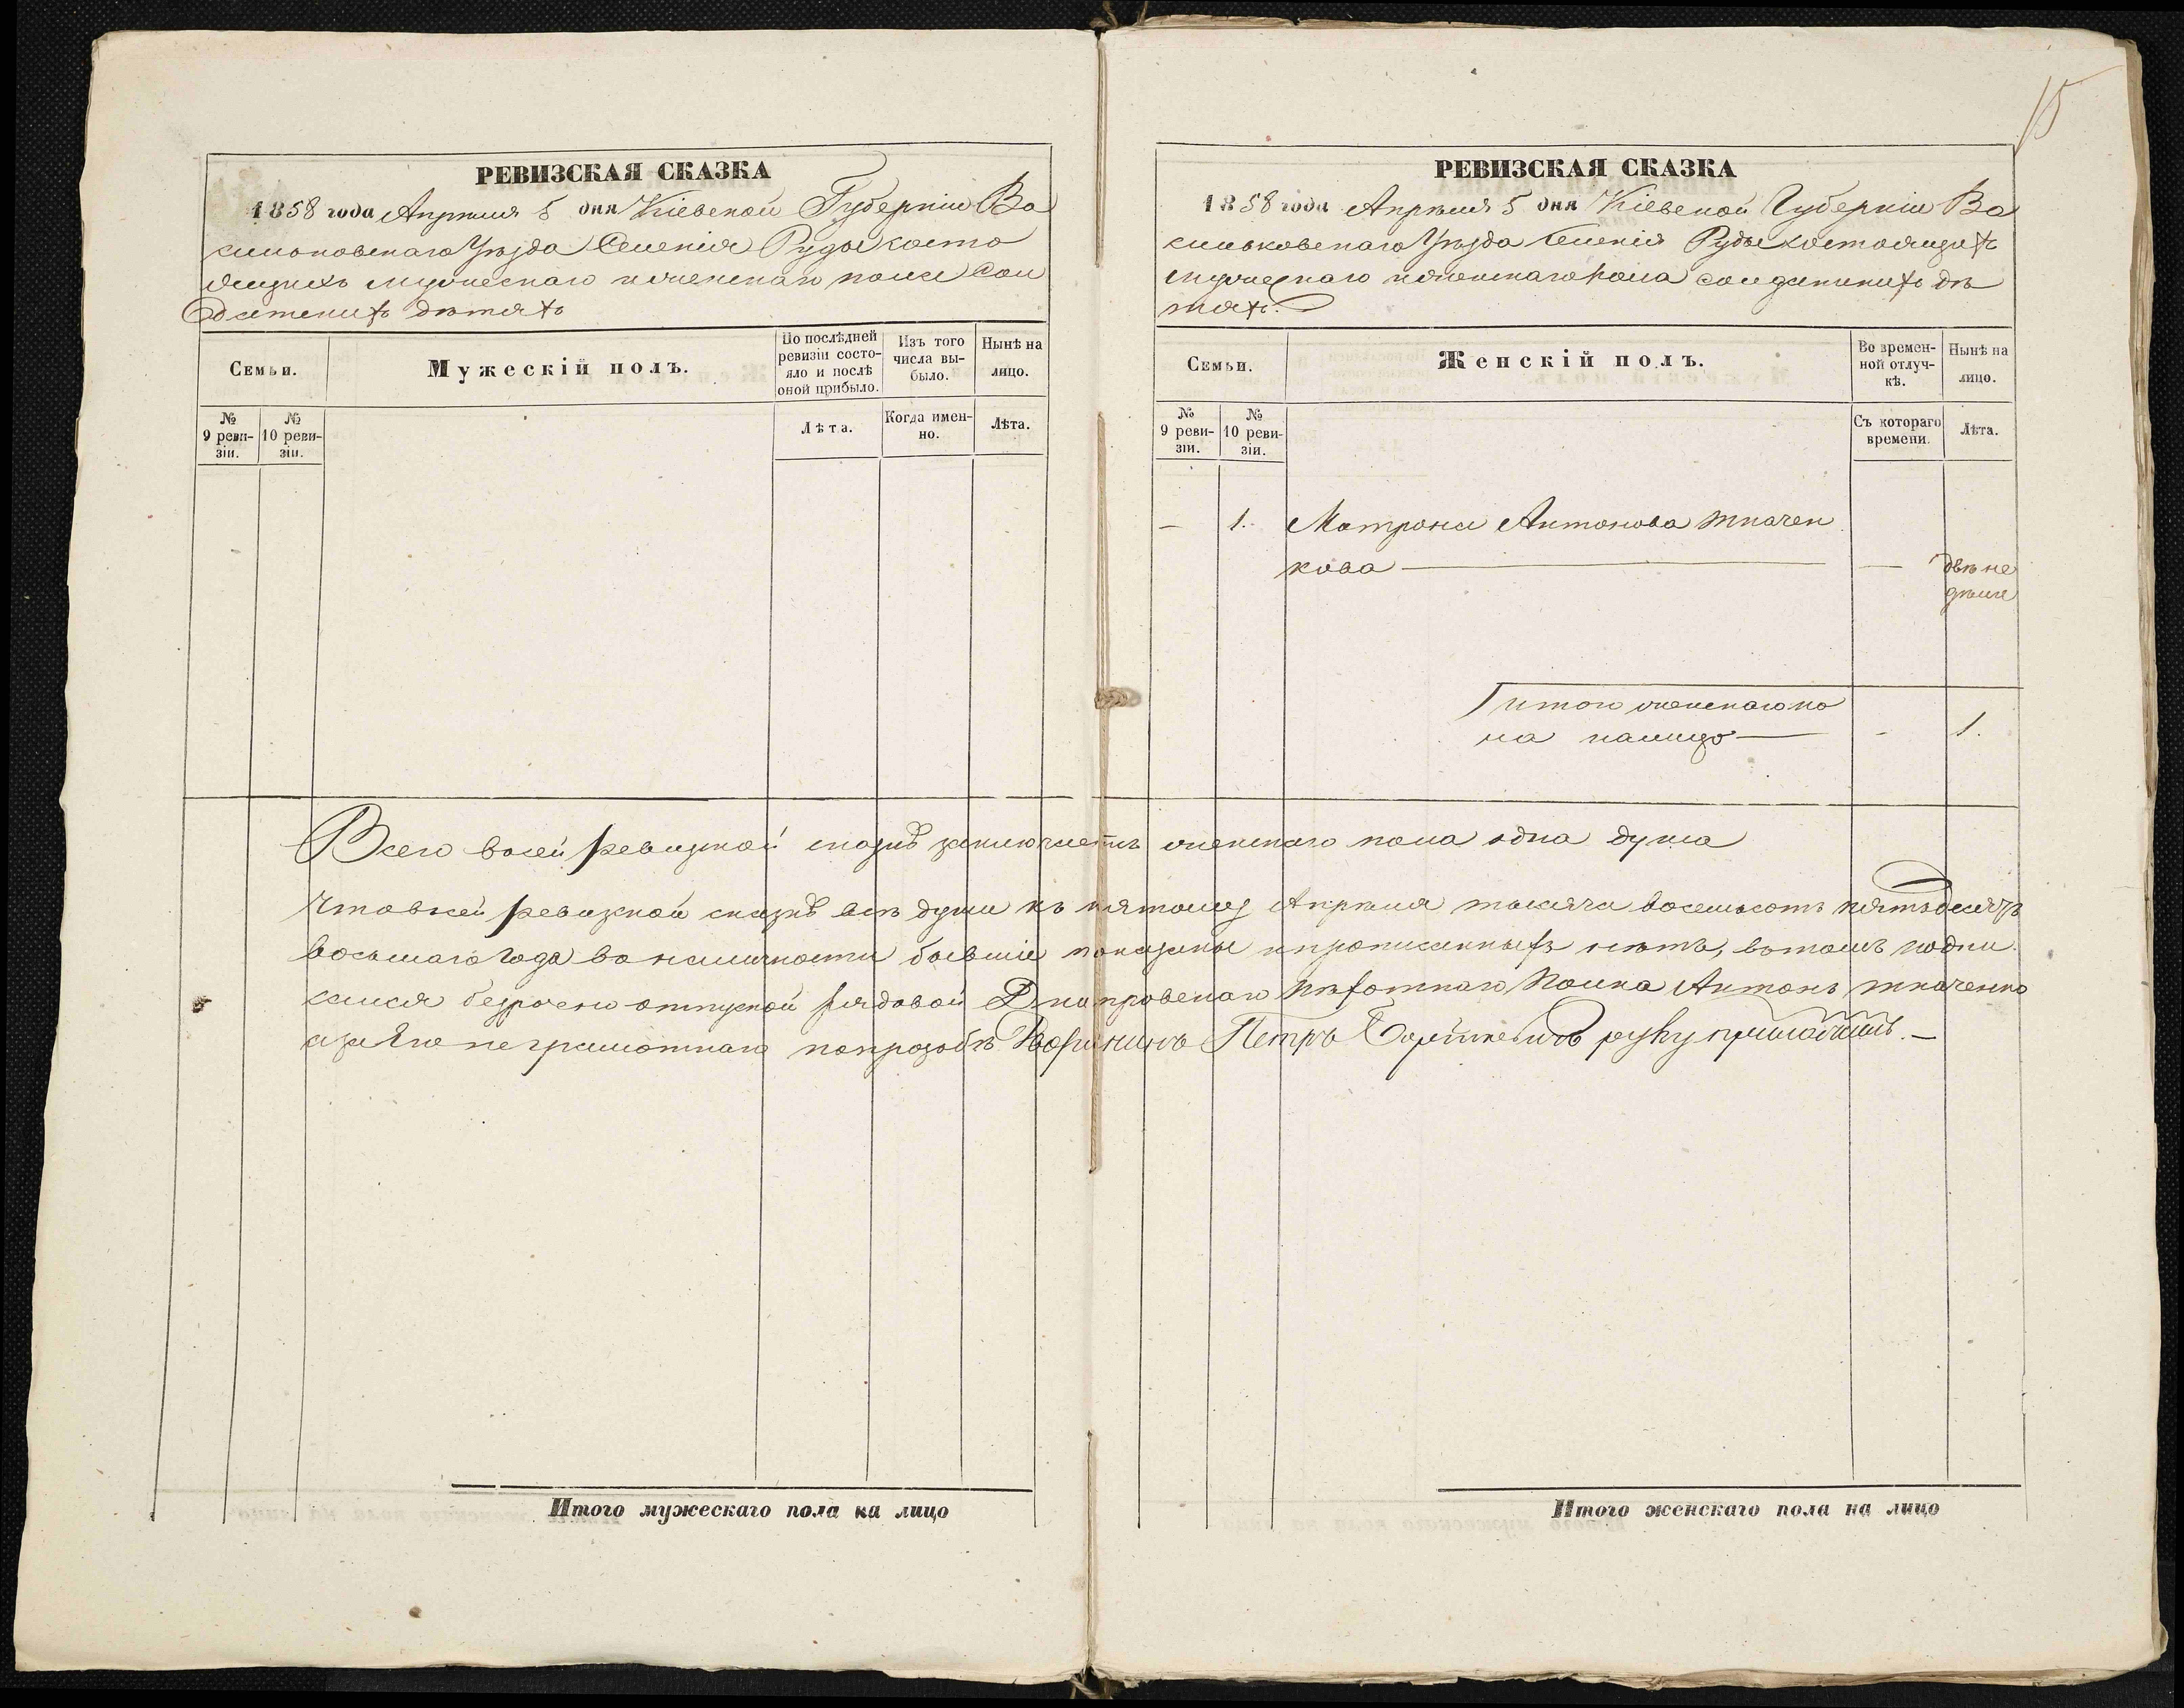 15
РЕВИЗСКАЯ СКАЗКА
1858 года Апрѣля 5 дня Кіевской Губерніи Ва
сильковскаго Уѣзда Селенія Руды состо
ящихъ мужескаго и женскаго пола Сол
датскихъ дѣтяхъ
Семьи.
Мужескій полъ.
По послѣдней ревизіи состояло и послѣ оной прибыло.
Изъ того числа выбыло.
Нынѣ на лицо.
№ 9 ревизіи.
№ 10 ревизіи.
Лѣта.
Когда именно.
Лѣта.
Итого мужескаго пола на лицо
РЕВИЗСКАЯ СКАЗКА
1858 года Апрѣля 5 дня Кіевской Губерніи Ва
сильковскаго Уѣзда Селенія Руды состоящихъ
мужескаго и женскаго пола солдатскихъ дѣ
тяхъ.
Семьи.
Женскій полъ.
Во временной отлучкѣ.
Нынѣ на лицо.
№ 9 ревизіи.
№ 10 ревизіи.
Съ котораго времени.
Лѣта.
— 1. Матрона Антонова Ткачен
кова — — двѣ не
дѣли
Итого женскаго по
ла налицо — - 1.
Всего в сей ревизкой сказкѣ заключается женскаго пола одна душа
Что в сей ревизкой сказкѣ всѣ души къ пятому Апрѣля тысяча восемьсотъ пятьдесятъ
восьмаго года в наличности бывшіе показаны и прописанныхъ нѣтъ, въ томъ подпи
сался безсрочно отпускной рядовой Днѣпровскаго пѣхотнаго Полка Антонъ Ткаченко
а за Его неграмотнаго попрозбѣ Дворянинъ Петръ руку приложилъ. —
Итого женскаго пола на лицо